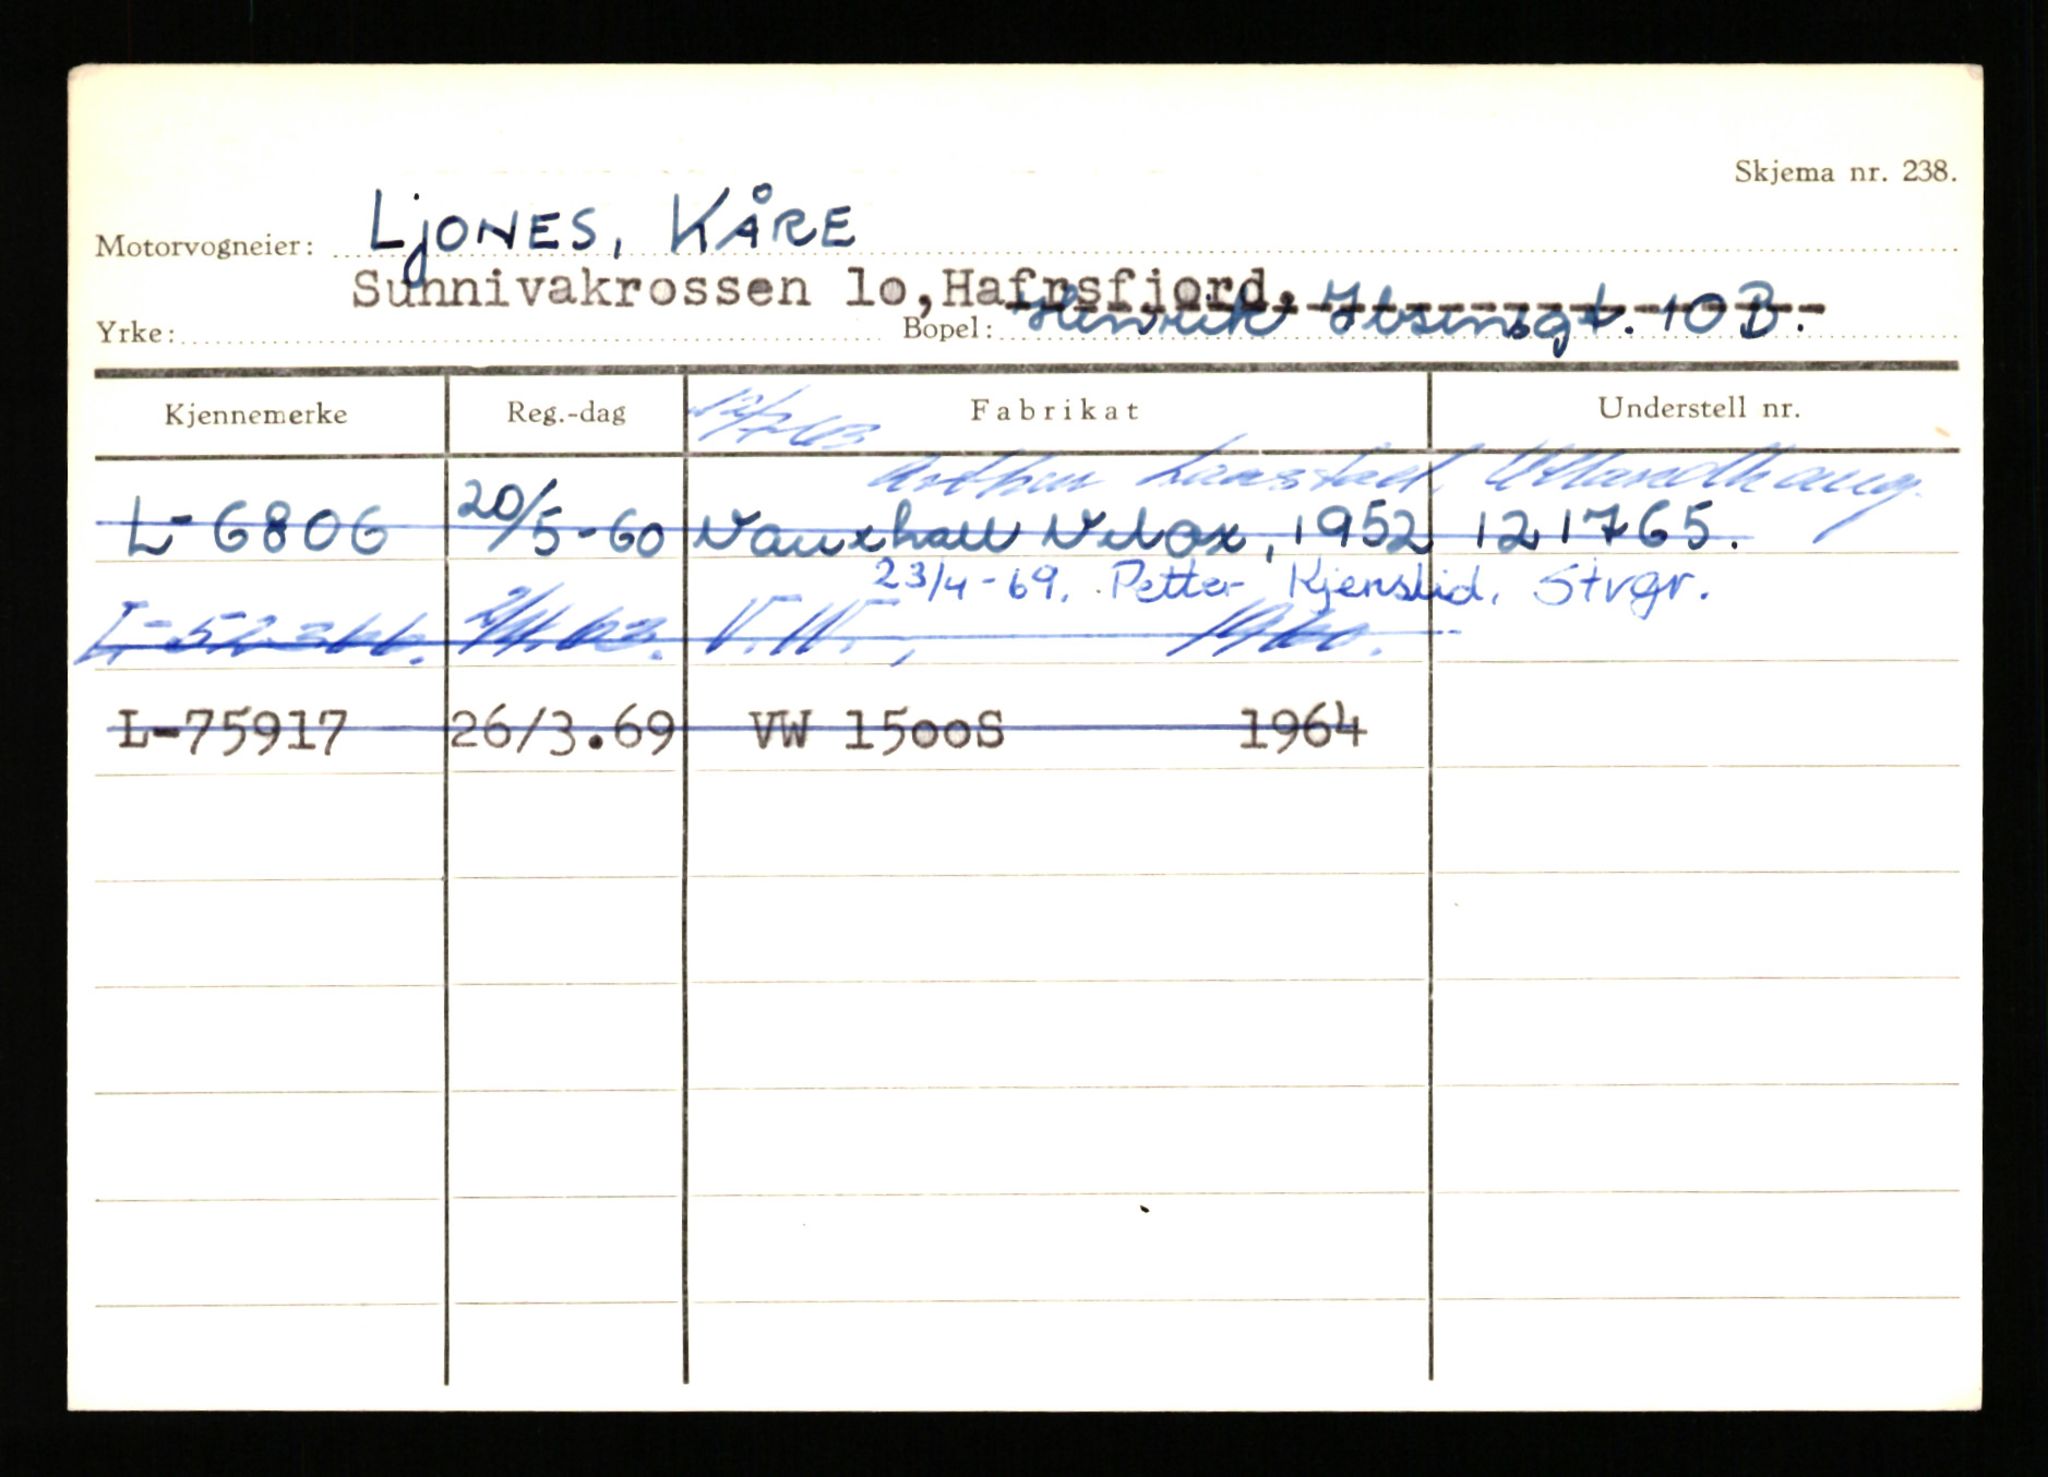 Skjema nr. 238.
Motorvogneier: LjONES, KÅRE
Sunnivakrossen 1o,Hafrsfjord.
Yrke: Bopel: Henrik Ibsensgt. 10 B.
Kjennemerke Reg.-dag Fabrikat Understell nr.
Arthur
L-6806 20/5-60 Vauxhall Velox, 1952 121765.
23/4-69. Petter Kjenslid, Strgr.
V.W., 1960.
L-75917 26/3.69 VW 15ooS 1964